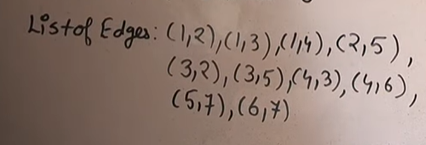 List of Edges: (1,2),(1,3),(1,4),(2,5),
(3,2),(3,5),(4,3),(4,6),
(5,7),(6,7)